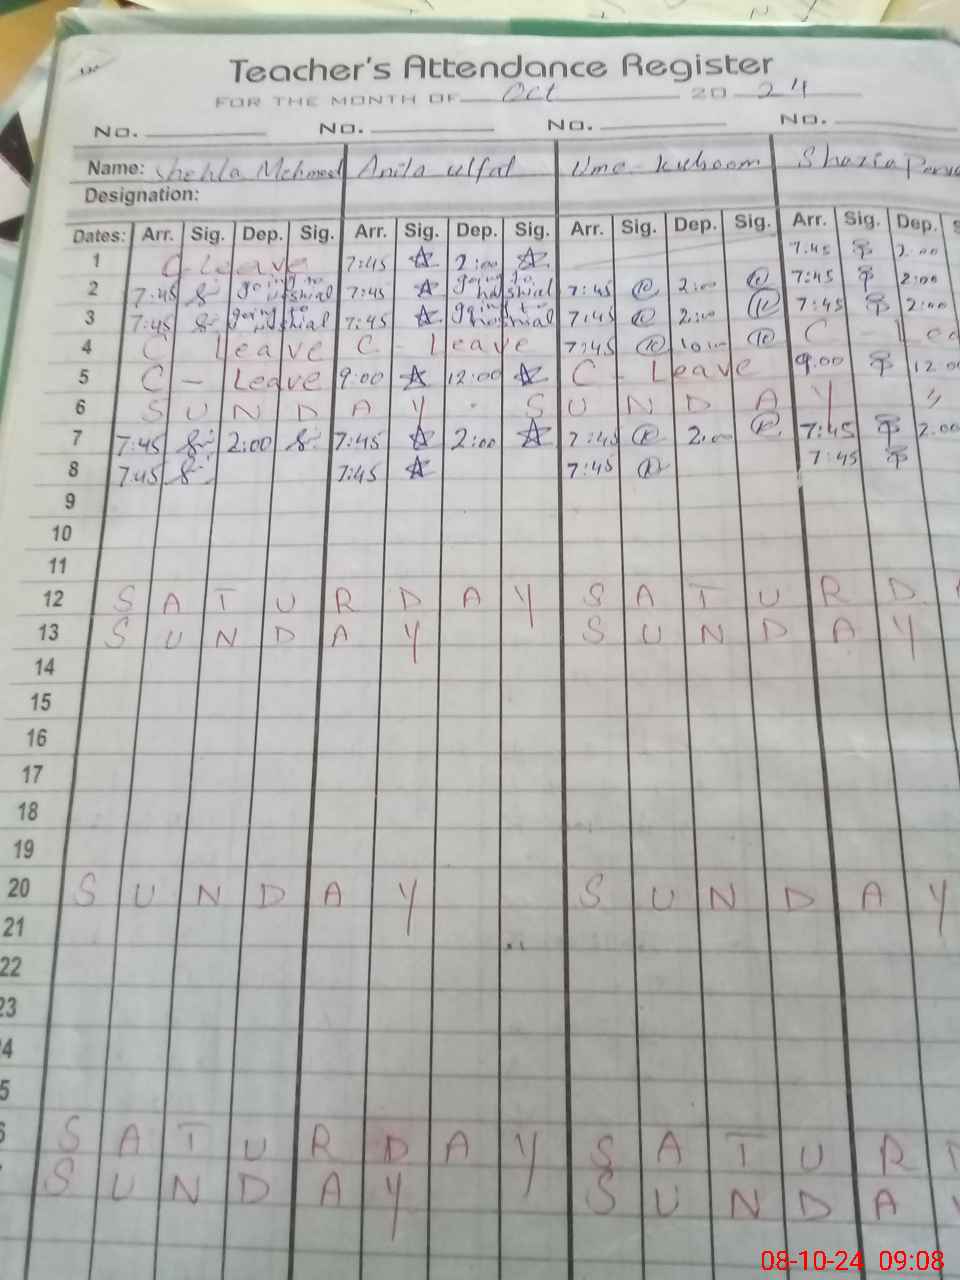 Teacher's Attendance Register
FOR THE MONTH OF Oct 20 24
No. No. No. No.
Name: Shehla Mehmood Anila ulfat Ume-kulsoom Shazia
Designation:
Dates: Arr. Sig. Dep. Sig. Arr. Sig. Dep. Sig. Arr. Sig. Dep. Sig. Arr. Sig. Dep. S
1 C-Leave 7:45 2:00 7:45 2:00
2 7:45 going to 7:45 going to 7:45 2:00 7:45 2:00
3 7:45 going to 7:45 going to 7:45 2:00 7:45 2:00
4 C Leave C - Leave 7:45 10:00 C - Lea
5 C - Leave 9:00 12:00 C - Leave 9:00 12:00
6 SUNDAY SUNDAY
7 7:45 2:00 7:45 2:00 7:45 2:00 7:45 2:00
8 7:45 7:45 7:45 7:45
9
10
11
12 SATURDAY SATURD
13 SUNDAY SUNDAY
14
15
16
17
18
19
20 SUNDAY SUNDAY
21
22
23
4
5
6 SATURDAY SATUR
SUNDAY SUNDA
08-10-24 09:08